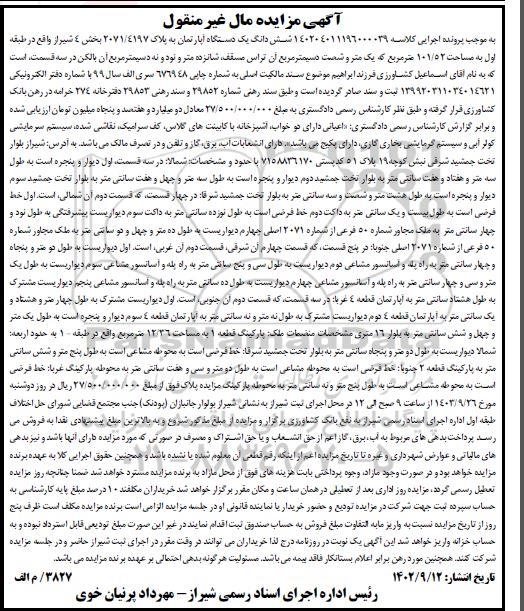 آگهی مزایده مال غیر منقول
به موجب پرونده اجرایی کلاسه ۱۴۰۲۰۴۰۱۱۱۹۶۰۰۰۰۳۹ شش دانگ یک دستگاه آپارتمان به پلاک ۲۰۷۱/۴۱۹۷ بخش ۴ شیراز واقع در طبقه
اول به مساحت ۱۰۱/۵۲ مترمربع که یک متر و شصت دسیمترمربع آن تراس مسقف، شانزده متر و نود و نه دسیمترمربع آن بالکن در سه قسمت، است
که به نام آقای اسماعیل کشاورزی فرزند ابراهیم موضوع سند مالکیت اصلی به شماره چاپی ۶۷۶۹۴۸ سری الف سال ۹۹ با شماره دفتر الکترونیکی
۱۳۹۹۲۰۳۱۱۰۳۴۰۱۴۶۲۱ ثبت و سند صادر گردیده است و طبق سند رهنی شماره ۲۹۸۵۲ و سند رهنی ۲۹۸۵۳ دفترخانه ۲۷۴ خرامه در رهن بانک
کشاورزی قرار گرفته و طبق نظر کارشناس رسمی دادگستری به مبلغ ۲۷/۵۰۰/۰۰۰/۰۰۰ معادل دو میلیارد و هفتصد و پنجاه میلیون تومان ارزیابی شده
و برابر گزارش کارشناس رسمی دادگستری: «اعیانی دارای دو خواب، آشپزخانه با کابینت های گلاس، کف سرامیک، نقاشی شده، سیستم سرمایشی
کولر آبی و سیستم گرمایشی بخاری گازی، دارای پکیج می باشد.، دارای انشعابات آب، برق، گاز و تلفن و در تصرف مالک می باشد. به آدرس: شیراز بلوار
تخت جمشید شرقی نبش کوچه۱۹ پلاک ۵۱ کدپستی ۷۱۵۸۸۳۶۱۷۰ با حدود و مشخصات: شمالا: در سه قسمت، اول دیوار و پنجره است به طول
سه متر و هفتاد و هفت سانتی متر به بلوار تخت جمشید دوم دیوار و پنجره است به طول سه متر و چهل و هفت سانتی متر به بلوار تخت جمشید سوم
دیوار و پنجره است به طول هشت متر و شصت و سه سانتی متر به بلوار تخت جمشید شرقا: در چهار قسمت، که قسمت دوم آن شمالی، است. اول خط
فرضی است به طول بیست و یک سانتی متر به داکت دوم خط فرضی است به طول نوزده سانتی متر به داکت سوم دیواریست پیشرفتگی به طول نود و
چهار سانتی متر به ملک مجاور شماره ۵۰ فرعی از شماره ۲۰۷۱ اصلی چهارم دیواریست به طول ده متر و چهل و دو سانتی متر به ملک مجاور شماره
۵۰ فرعی از شماره ۲۰۷۱ اصلی جنوبا: در پنج قسمت، که قسمت چهارم آن شرقی، قسمت دوم آن غربی، است. اول دیواریست به طول دو متر و پنجاه
و چهار سانتی متر به راه پله و آسانسور مشاعی دوم دیواریست به طول سی و پنج سانتی متر به راه پله و آسانسور مشاعی سوم دیواریست به طول یک
متر و سی و چهار سانتی متر به راه پله و آسانسور مشاعی چهارم دیواریست به طول ده سانتی متر به راه پله و آسانسور مشاعی پنجم دیواریست مشترک
به طول هشتاد سانتی متر به آپارتمان قطعه ۴ غربا: در سه قسمت، که قسمت دوم آن جنوبی، است. اول دیواریست مشترک به طول چهار متر و هشتاد و
یک سانتی متر به آپارتمان قطعه ۴ دوم دیواریست مشترک به طول نه متر و نه سانتی متر به آپارتمان قطعه ۴ سوم دیوار و پنجره است به طول یک متر
و چهل و شش سانتی متر به بلوار ۱۶ متری مشخصات منضمات ملک: پارکینگ قطعه ۱ به مساحت ۱۲/۳۶ مترمربع واقع در طبقه ۱- به حدود اربعه:
شمالا دیواریست به طول دو متر و پنجاه سانتی متر به بلوار تخت جمشید شرقا: خط فرضی است به محوطه مشاعی است به طول پنج متر و شش سانتی
متر به پارکینگ قطعه ۲ جنوبا: خط فرضی است به محوطه مشاعی است به طول دو متر و سی و هفت سانتی متر به محوطه پارکینگ غربا: خط فرضی
است به محوطه مشاعی است به طول پنج متر و نه سانتی متر به محوطه پارکینگ مزایده پلاک فوق از مبلغ ۲۷/۵۰۰/۰۰۰/۰۰۰ ریال در روز دوشنبه
مورخ ۱۴۰۳/۹/۲۶ از ساعت ۹ صبح الی ۱۲ در محل اجرای ثبت شیراز به نشانی شیراز بولوار جانبازان (پودنک) جنب مجتمع قضایی شورای حل اختلاف
طبقه اول اداره اجرای اسناد رسمی شیراز به نفع بانک کشاورزی برگزار و مزایده از مبلغ مذکور شروع و به بالاترین مبلغ پیشنهادی نقدا به فروش می
رسد. پرداخت بدهی های مربوط به آب، برق، گاز اعم از حق انشعاب و یا حق اشتراک و مصرف در صورتی که مورد مزایده دارای آنها باشد و نیز بدهی
های مالیاتی و عوارض شهرداری و غیره تا تاریخ مزایده اعم از اینکه رقم قطعی آن معلوم شده یا نشده باشد و همچنین حقوق اجرایی کلا به عهده برنده
مزایده خواهد بود و در صورت وجود مازاد، وجوه پرداختی بابت هزینه های فوق از محل مازاد به برنده مزایده مسترد خواهد شد ضمنا چنانچه روز مزایده
تعطیل رسمی گردد، مزایده روز اداری بعد از تعطیلی در همان ساعت و مکان مقرر برگزار خواهد شد خریداران مکلفند ۱۰ درصد مبلغ پایه کارشناسی به
حساب سپرده ثبت جهت شرکت در مزایده تودیع و حضور خریدار یا نماینده قانونی او در جلسه مزایده الزامی است برنده مزایده مکلف است ظرف پنج
روز از تاریخ مزایده نسبت به واریز مابه التفاوت مبلغ فروش به حساب صندوق ثبت اقدام نمایند در غیر این صورت مبلغ تودیعی قابل استرداد نبوده و به
حساب خزانه واریز خواهد شد این آگهی یک نوبت در روزنامه درج لذا خریداران می توانند در وقت مقرر در اجرای ثبت شیراز حاضر و در جلسه مزایده
شرکت کنند. همچنین مورد رهن برابر اعلام بستانکار فاقد بیمه می باشد. مسئولیت هرگونه بدهی احتمالی بر عهده برنده مزایده می باشد.
تاریخ انتشار: ۱۴۰۲/۹/۱۲ ۳۸۲۷/ م الف
رئیس اداره اجرای اسناد رسمی شیراز – مهرداد پرنیان خوی